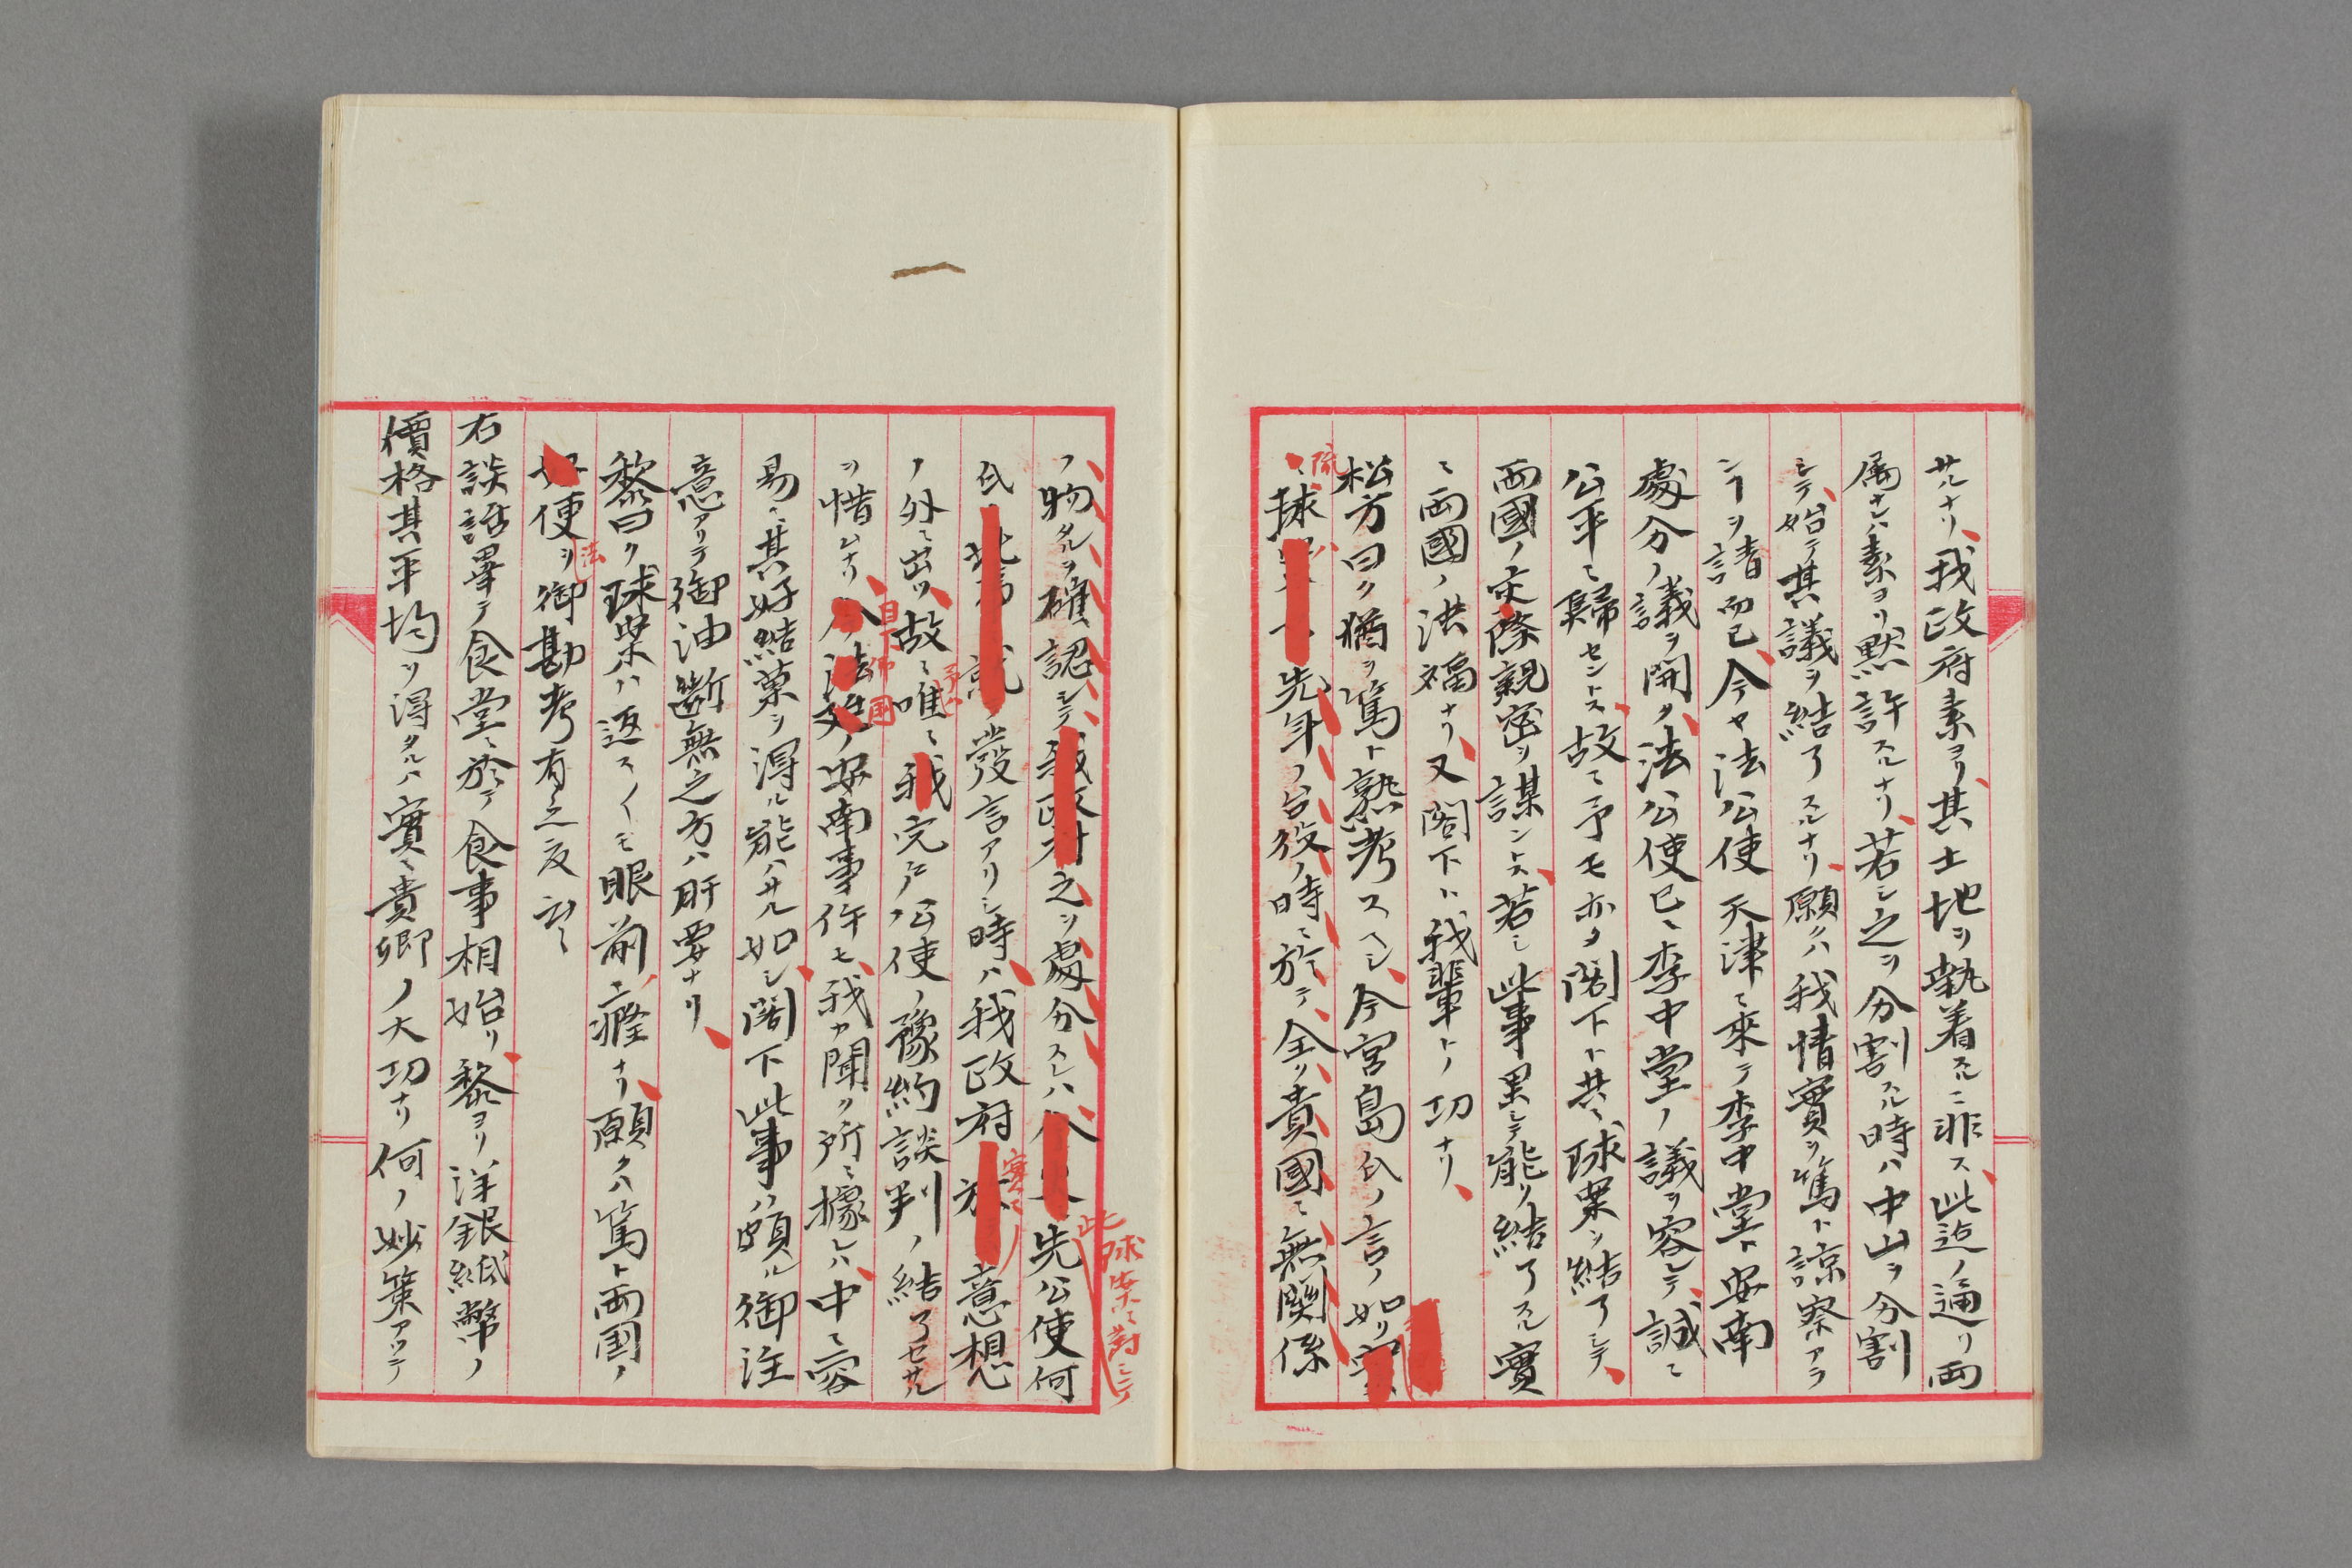 サルナリ、我政府素ヨリ其土地ヲ執着スルニ非ス、此迄ノ通リ両
属ナレハ素ヨリ黙許スルナリ、若シ之ヲ分割スル時ハ中山ヲ分割
シテ、始テ其議ヲ結了スルナリ、願クハ我情實ヲ篤ト諒察アラ
ンヿヲ請而已、今ヤ法公使天津ニ来テ李中堂ト安南
處分ノ議ヲ開ク、法公使已ニ李中堂ノ議ヲ容レテ、誠ニ
公平ニ歸セントス、故ニ予モ亦タ閣下ト共ニ球案ヲ結了シテ、
両國ノ交際親密ヲ謀ントス、若シ此事果シテ能ク結了スル實
ニ両國ノ洪福ナリ、又閣下ト我輩トノ功ナリ、
松方曰ク猶ヲ篤ト熟考スヘシ、今宮島氏ノ言ノ如ク
流球 先年ノ台役ノ時ニ於テ、全ク貴國ニ無関係
ノ物タルヲ確認シテ、之ヲ處分スレハ 先公使何
此球案ニ對シテ
氏 發言アリシ時ハ、我政府 寔ニ 意想
ノ外ニ出ツ、故ニ唯ニ 完戸公使ノ豫約談判ノ結了セサル
ヲ惜ムナリ、目下佛國ノ安南事件モ、我カ聞ク所ニ據レハ、中々容
易ニ其好結菓ヲ得ル能ハサル如シ、閣下此事ハ頗ル御注
意アリテ御油断無之方ハ肝要ナリ、
黎曰ク球案ハ返ス〱モ眼前ノ癦ナリ、願クハ篤ト両国ノ
法 使ヲ御勘考有之度云々
右談話畢テ食堂ニ於テ食事相始リ、黎ヨリ洋銀紙幣ノ
價格其平均ヲ得タルハ實ニ貴卿ノ大功ナリ何ノ妙策アツテ